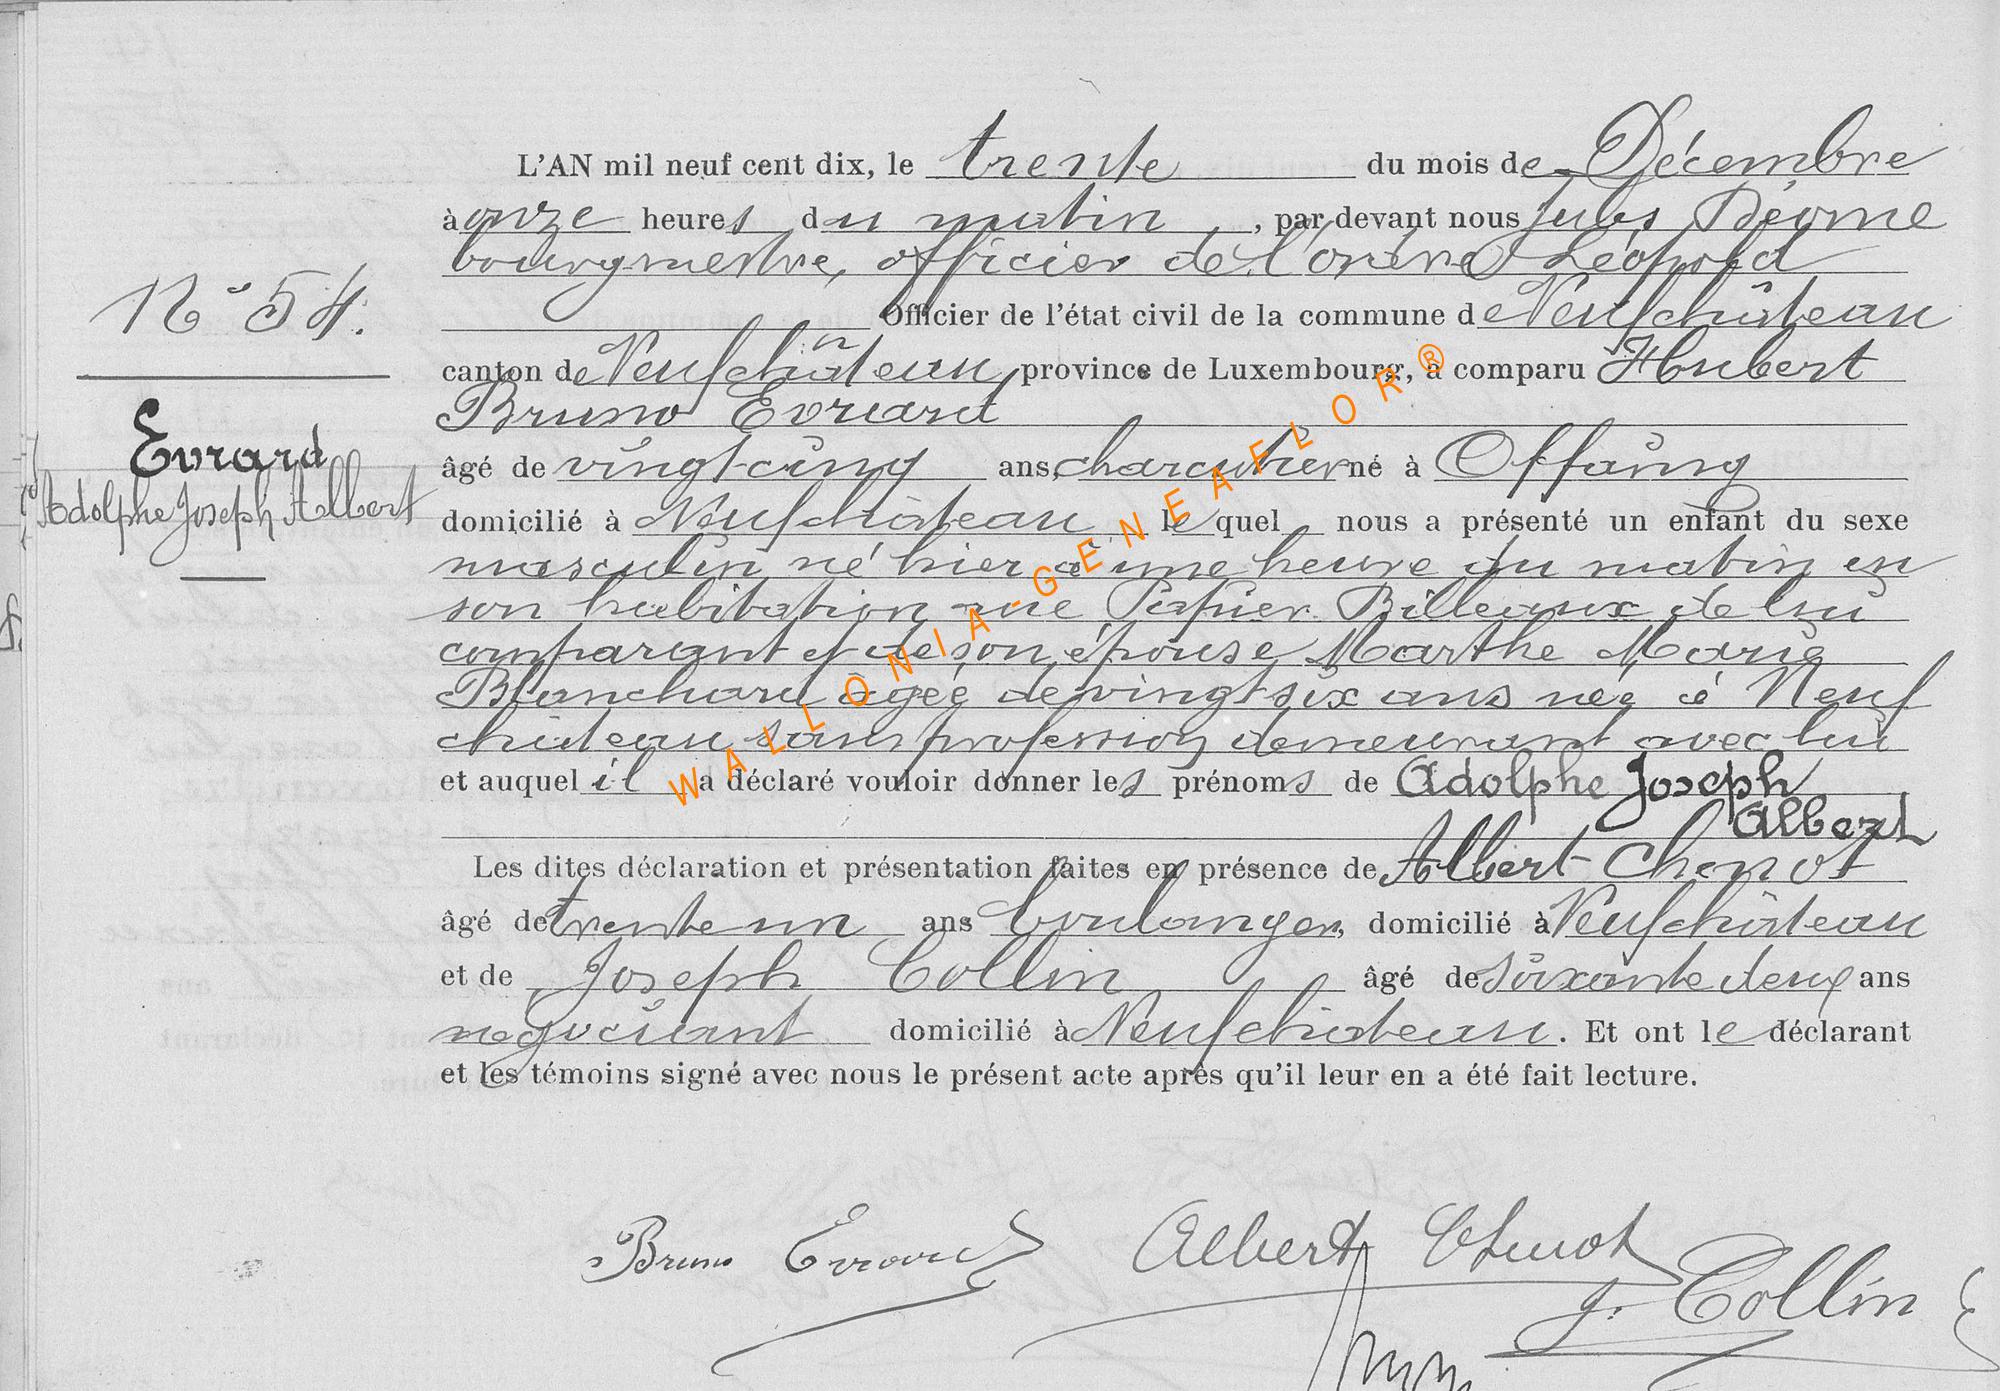 L'AN mil neuf cent dix, le trente du mois de Décembre
à onze heures du matin, par devant nous Jules
bourgmestre, officier de l'ordre Léopold
Officier de l'état civil de la commune de Neufchâteau
canton de Neufchâteau province de Luxembourg, a comparu Hubert
Bruno Evrard
âgé de vingt cinq ans, charcutier né à Offaing
domicilié à Neufchâteau lequel nous a présenté un enfant du sexe
masculin né hier à une heure du matin en
son habitation rue Billeaux de lui
comparant et de son épouse Marthe Marie
Blanchard âgée de vingt six ans née à Neuf
château sans profession demeurant avec lui
et auquel il a déclaré vouloir donner les prénoms de Adolphe Joseph
Albert
Les dites déclaration et présentation faites en présence de Albert Chenot
âgé de trente un ans boulanger, domicilié à Neufchâteau
et de Joseph Collin âgé de soixante deux ans
négociant domicilié à Neufchâteau. Et ont le déclarant
et les témoins signé avec nous le présent acte après qu'il leur en a été fait lecture.
N° 54.
Evrard
Adolphe Joseph Albert
Bruno Evrard
Albert Chenot
J. Collin
WALLONIA-GENEAFLOR®